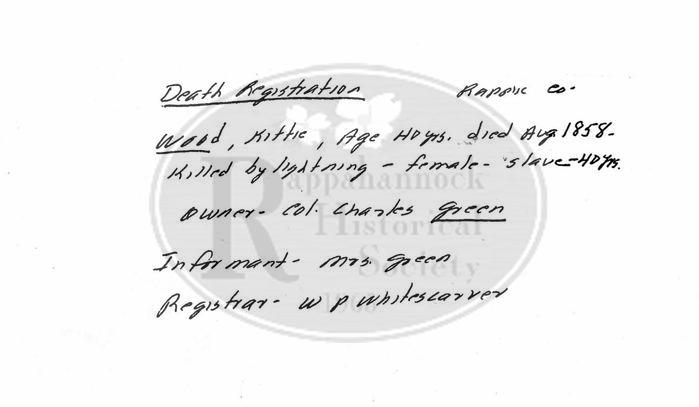 Death Registration Rappk co-
Wood, Kittie, Age 40 yrs. died Aug 1858-
Killed by lightning - female - slave - 40 yrs.
Owner - Col. Charles Green
Informant - Mrs. Green
Registrar - W P Whitescarver
Rappahannock
Historical
Society
1965